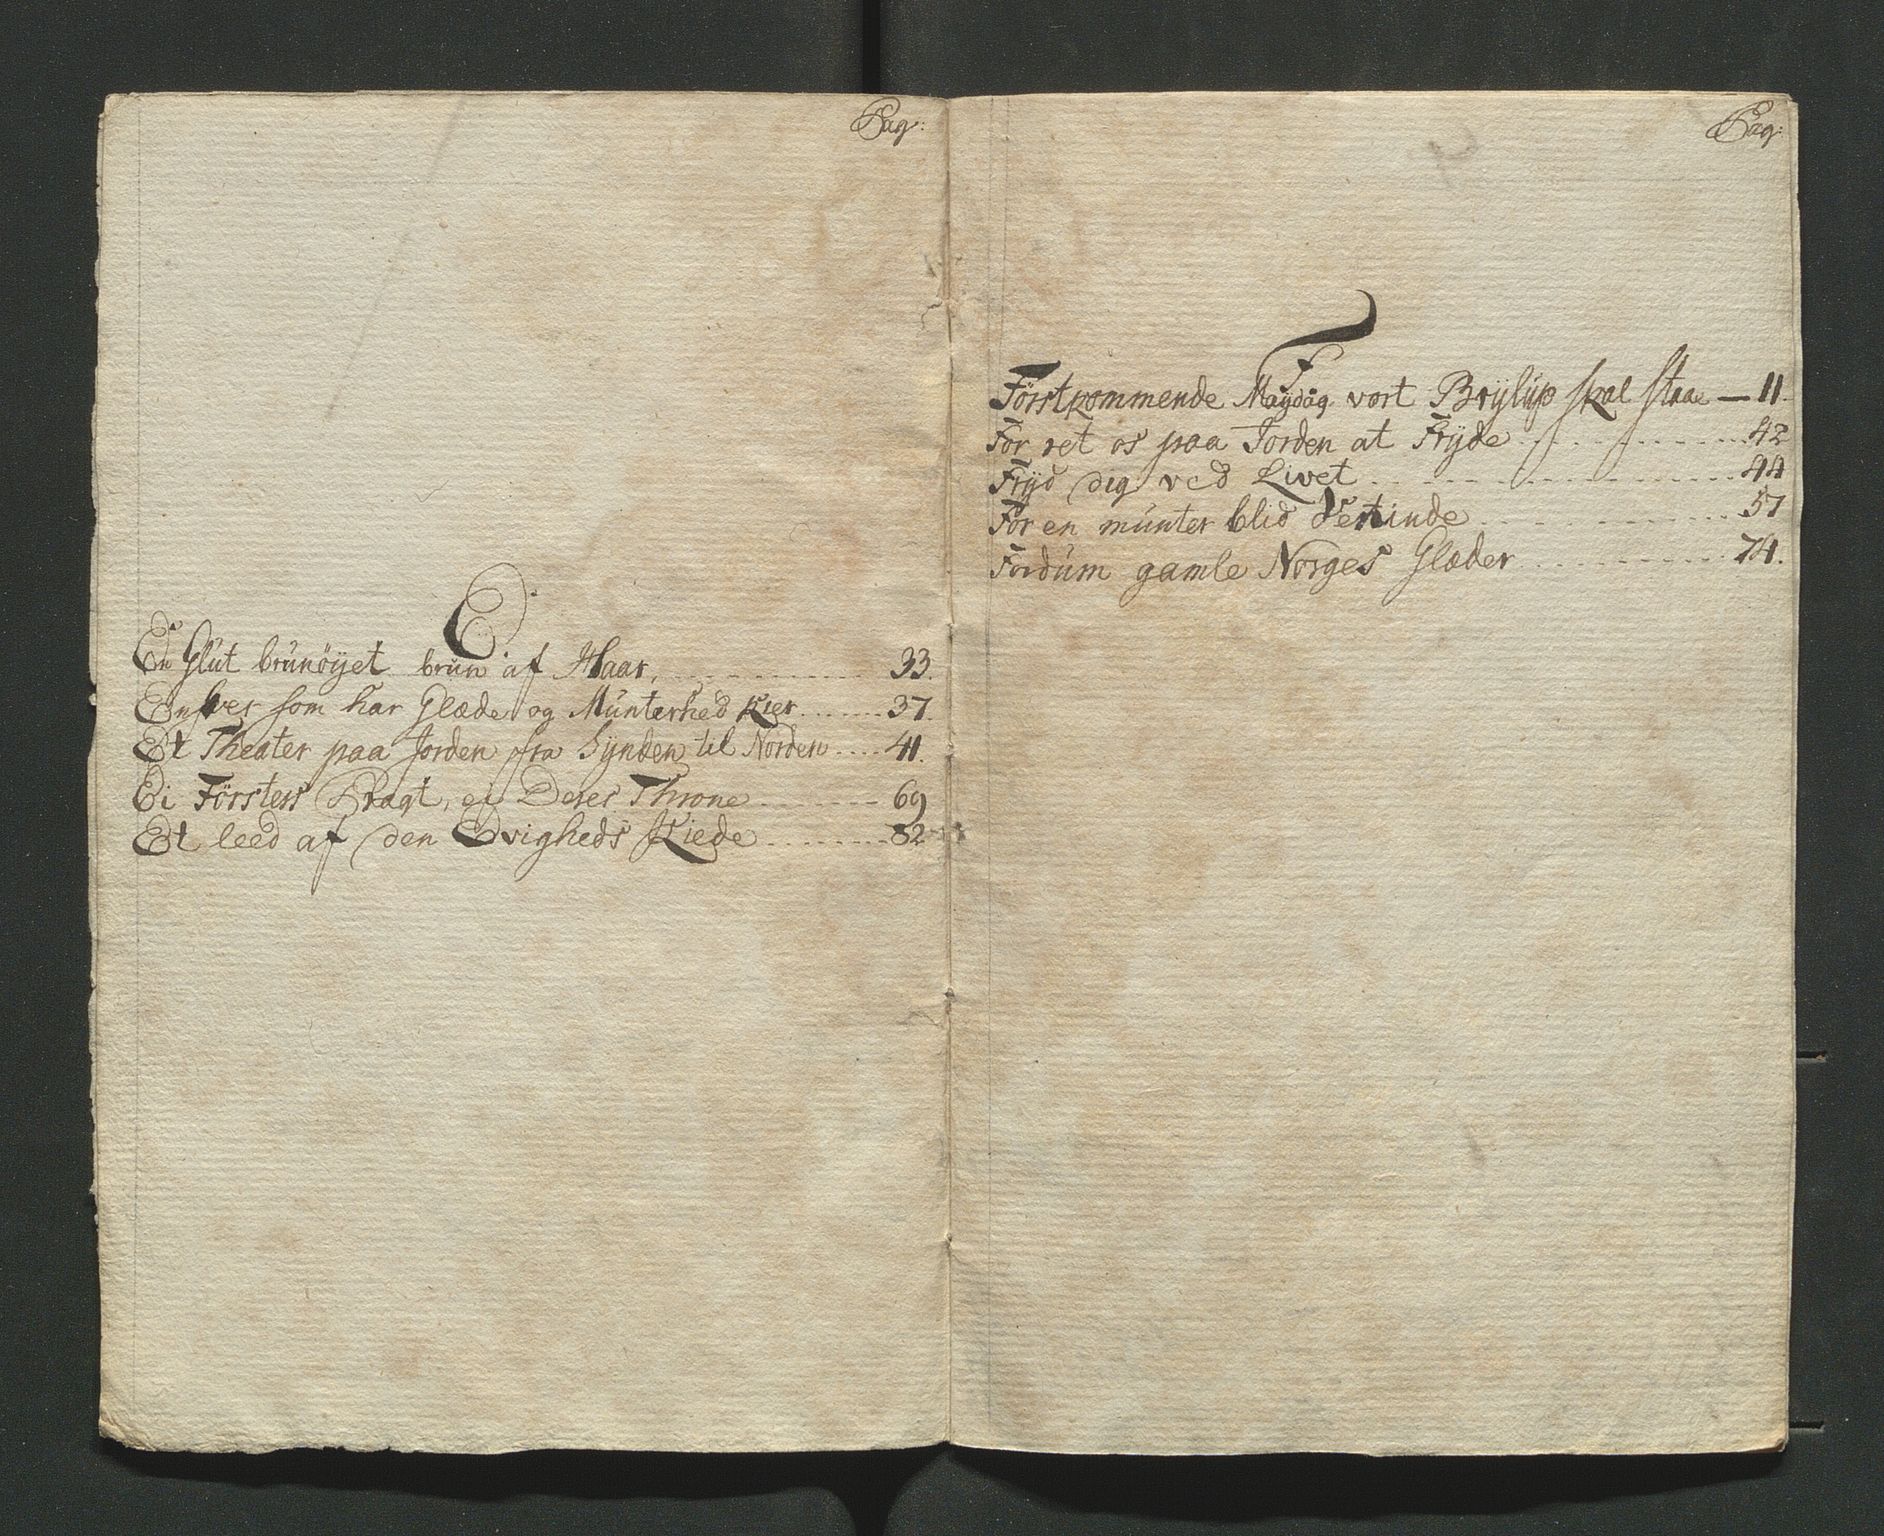 Pag:
E
En Glut brunøÿet brun af Haar, 33.
Enhver som har Glæde og Munterhed kier 37.
Et Theater paa Jorden fra Sÿnden til Norden 41.
Ei Försters Pragt, ei Deres Throne 69
Et leed af den Evigheds Kiede 82
Pag:
F
Förstkommende Maÿdag vort Brÿlup skal staae — 11.
For ret os paa Jorden at Frÿde 42
Frÿd dig ved Livet 44
For en munter blid Vertinde 57
Fordum gamle Norges Glæder 74.